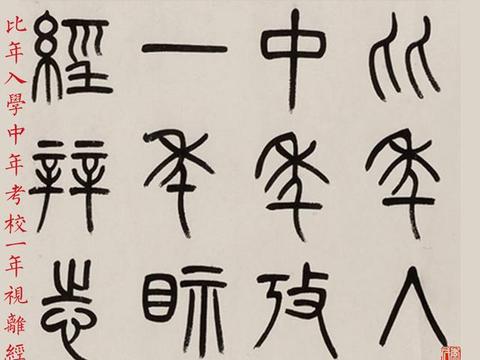 比年入
中年攷
一年眎
經辨志
比年入學中年考校一年視離經